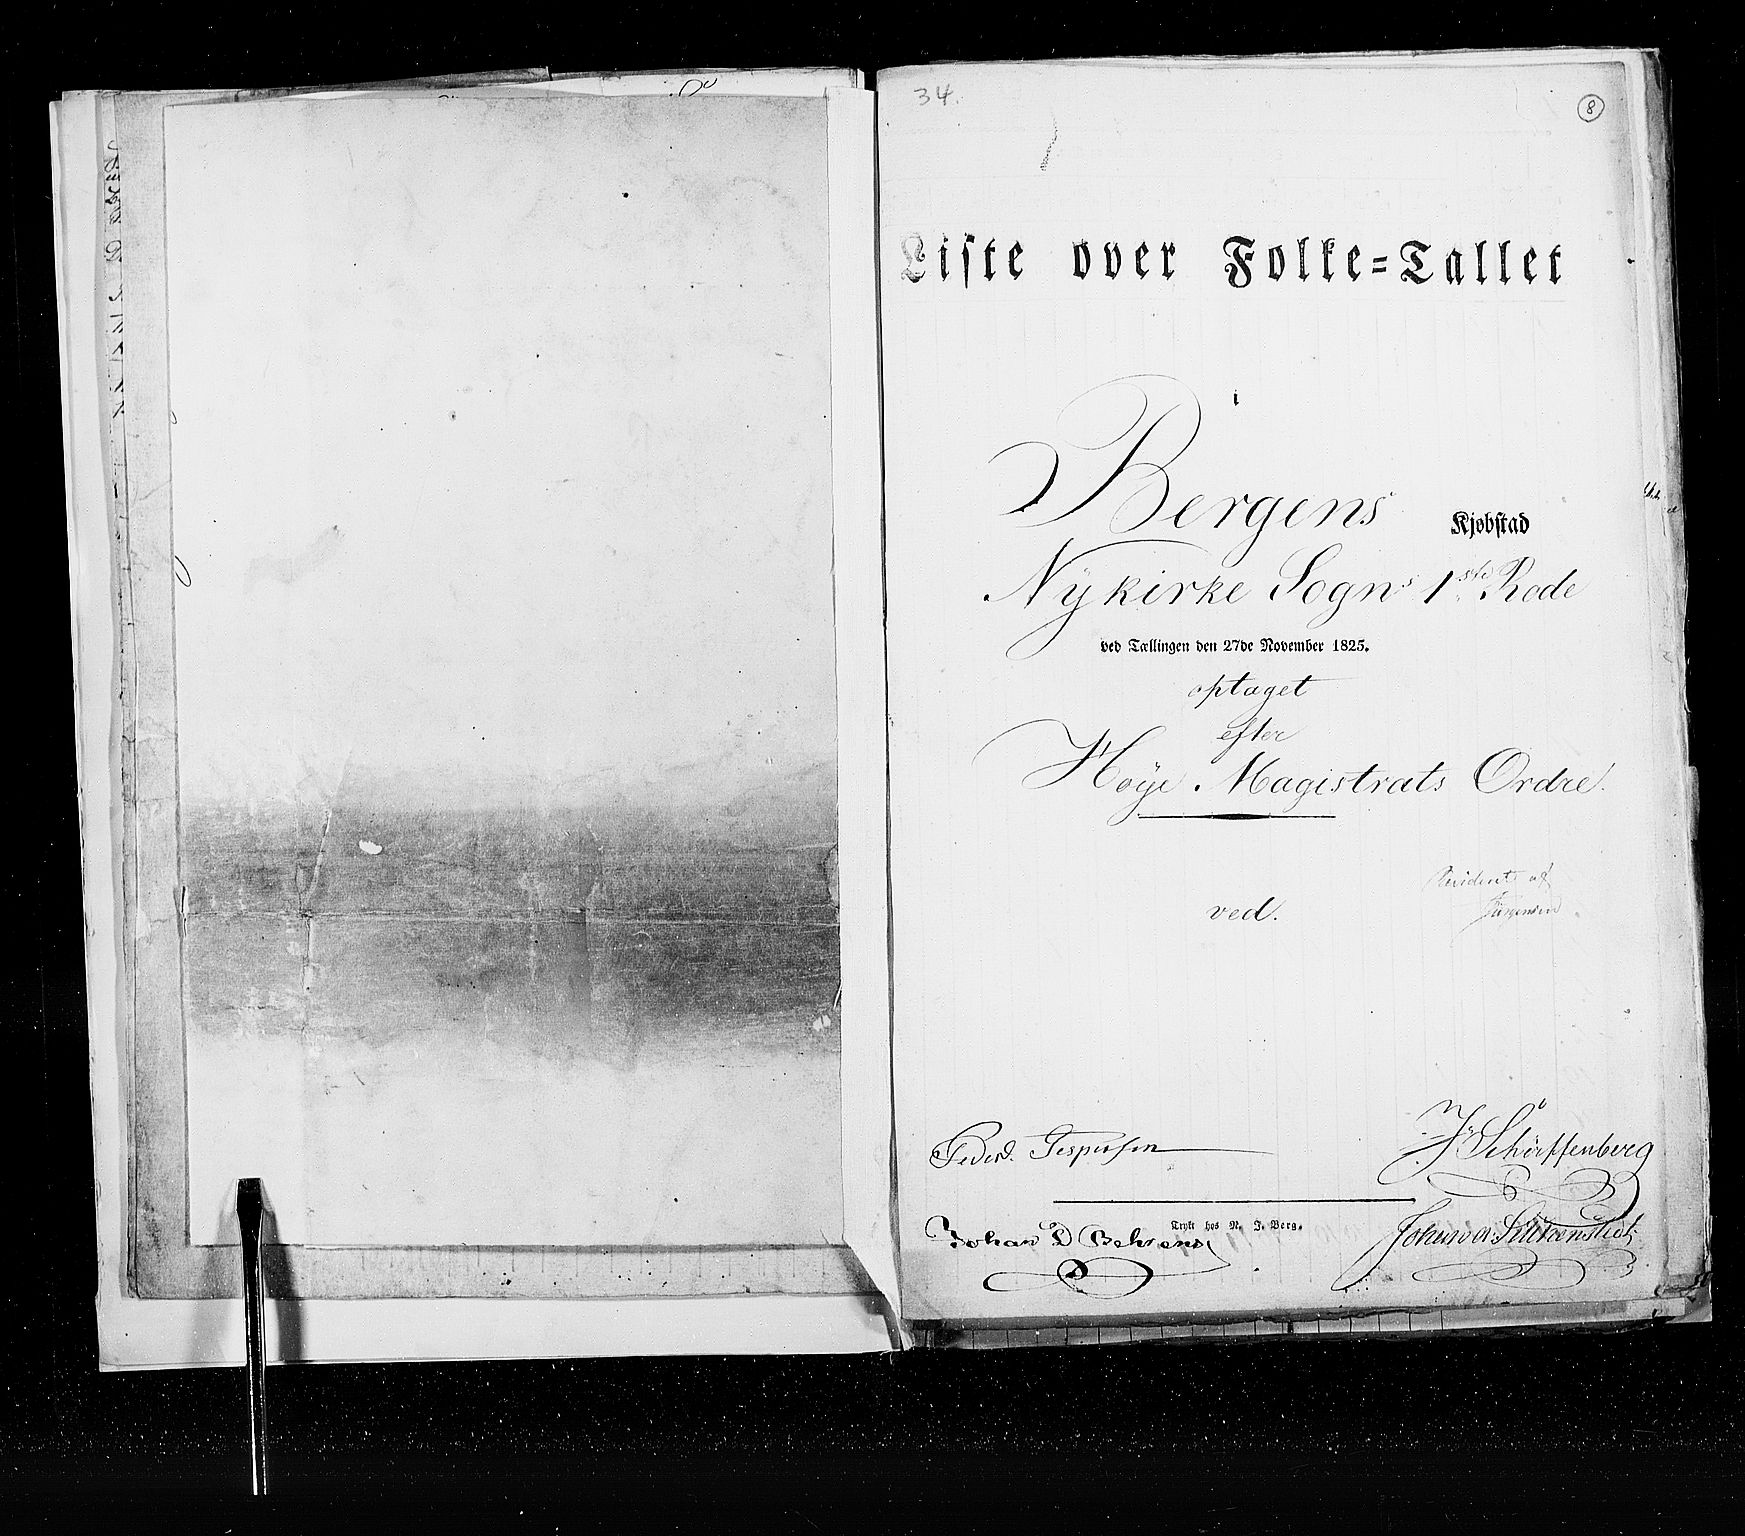 34.
8
Liste over Folke=Tallet
i
Bergens Kjøbstad
Nÿkirke Sogns 1ste Rode
ved Tællingen den 27de November 1825.
optaget
efter
Høÿe Magistrats Ordre.
ved.
Revideret af
Jürgensen
Peder Jespersen
Trykt hos R. J. Berg.
Johan D Behrens